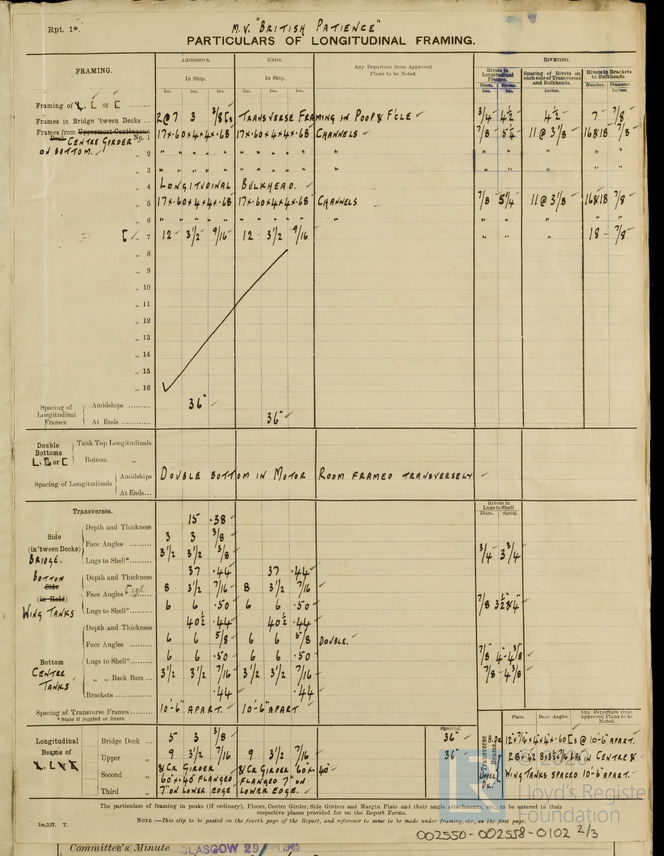 Rpt. 1*.
M.V. "BRITISH PATIENCE"
PARTICULARS OF LONGITUDINAL FRAMING.
FRAMING.
AMIDSHIPS.
ENDS.
In Ship.
In Ship.
Any Departure from Approved Plans to be Noted.
RIVETING.
Rivets in Longitudinal Frames.
Spacing of Rivets on each side of Transverses and Bulkheads.
Rivets in Brackets to Bulkheads.
Ins. Ins. Ins. Ins. Ins. Ins.
Diam. Ins. Inches. Number. Diameter. Inches.
Framing of L, C or [
Frames in Bridge 'tween Decks 2@7 3 3/8 [s TRANSVERSE FRAMING IN POOP & F'CLE 3/4 4 1/2 4 1/2 7 - 7/8
Frames from Uppermost Continuous Deck No. 17×.60×4×4×.68 17×.60×4×4×.68 CHANNELS 7/8 5 1/4 11@3 1/8 16&18 7/8
CENTRE GIRDER ON BOTTOM.
„ 2 " " " " "
„ 3 " " " " "
„ 4 LONGITUDINAL BULKHEAD.
„ 5 17×.60×4×4×.68 17×.60×4×4×.68 CHANNELS 7/8 5 1/4 11@3 1/8 16&18 7/8
„ 6 " " " " "
[ „ 7 12 - 3 1/2 9/16 12 3 1/2 9/16 " " " 18 - 7/8
„ 8
„ 9
„ 10
„ 11
„ 12
„ 13
„ 14
„ 15
„ 16
Spacing of Longitudinal Frames
Amidships 36"
At Ends 36"
Double Bottoms L, C or [
Tank Top Longitudinals
Bottom „
Spacing of Longitudinals
Amidships DOUBLE BOTTOM IN MOTOR ROOM FRAMED TRANSVERSELY
At Ends
Transverses.
Rivets in Lugs to Shell
Diam. Spcng.
Side (in 'tween Decks) BRIDGE.
Depth and Thickness 15 .38
Face Angles 3 3 3/8
Lugs to Shell* 3 1/2 3 1/2 3/8 3/4 3 3/4
BOTTOM Side (in Hold) WING TANKS
Depth and Thickness 37 .44 37 .44
Face Angles 8 3 1/2 7/16 8 3 1/2 7/16
Lugs to Shell* 6 6 .50 6 6 .50
Bottom CENTRE TANKS
Depth and Thickness 40 1/2 .44 40 1/2 .44
Face Angles 6 6 5/8 6 6 5/8 DOUBLE.
Lugs to Shell* 6 6 .50 6 6 .50 7/8 4-4 3/8
„ „ Back Bars 3 1/2 3 1/2 7/16 3 1/2 3 1/2 7/16 7/8 -4 3/8
Brackets .44 .44
Spacing of Transverse Frames 10'-6" APART. 10'-6" APART
* State if joggled or liners.
Plate. Face Angles. Any Departure from Approved Plans to be Noted.
Longitudinal Beams of
Spacing
Bridge Deck 5 3 3/8 36"
Upper „ 9 3 1/2 7/16 9 3 1/2 7/16 36"
Second „ & CR GIRDER & CR GIRDER
Third „ 7" ON LOWER EDGE LOWER EDGE.
Transverse Beams.
B. DK [s @ 10'-6" APART.
UPPER DK. IN CENTRE &
WING TANKS SPACED 10'-6" APART.
The particulars of framing in peaks (if ordinary), Floors, Centre Girder, Side Girders and Margin Plate and their angle attachments, etc., to be entered in their respective places provided for on the Report Forms.
NOTE:—This slip to be posted on the fourth page of the Report, and reference to same to be made under framing, etc., on the first page.
© 2020
Lloyd's Register
Foundation
002550-002558-0102 2/3
Committee's Minute
GLASGOW 29